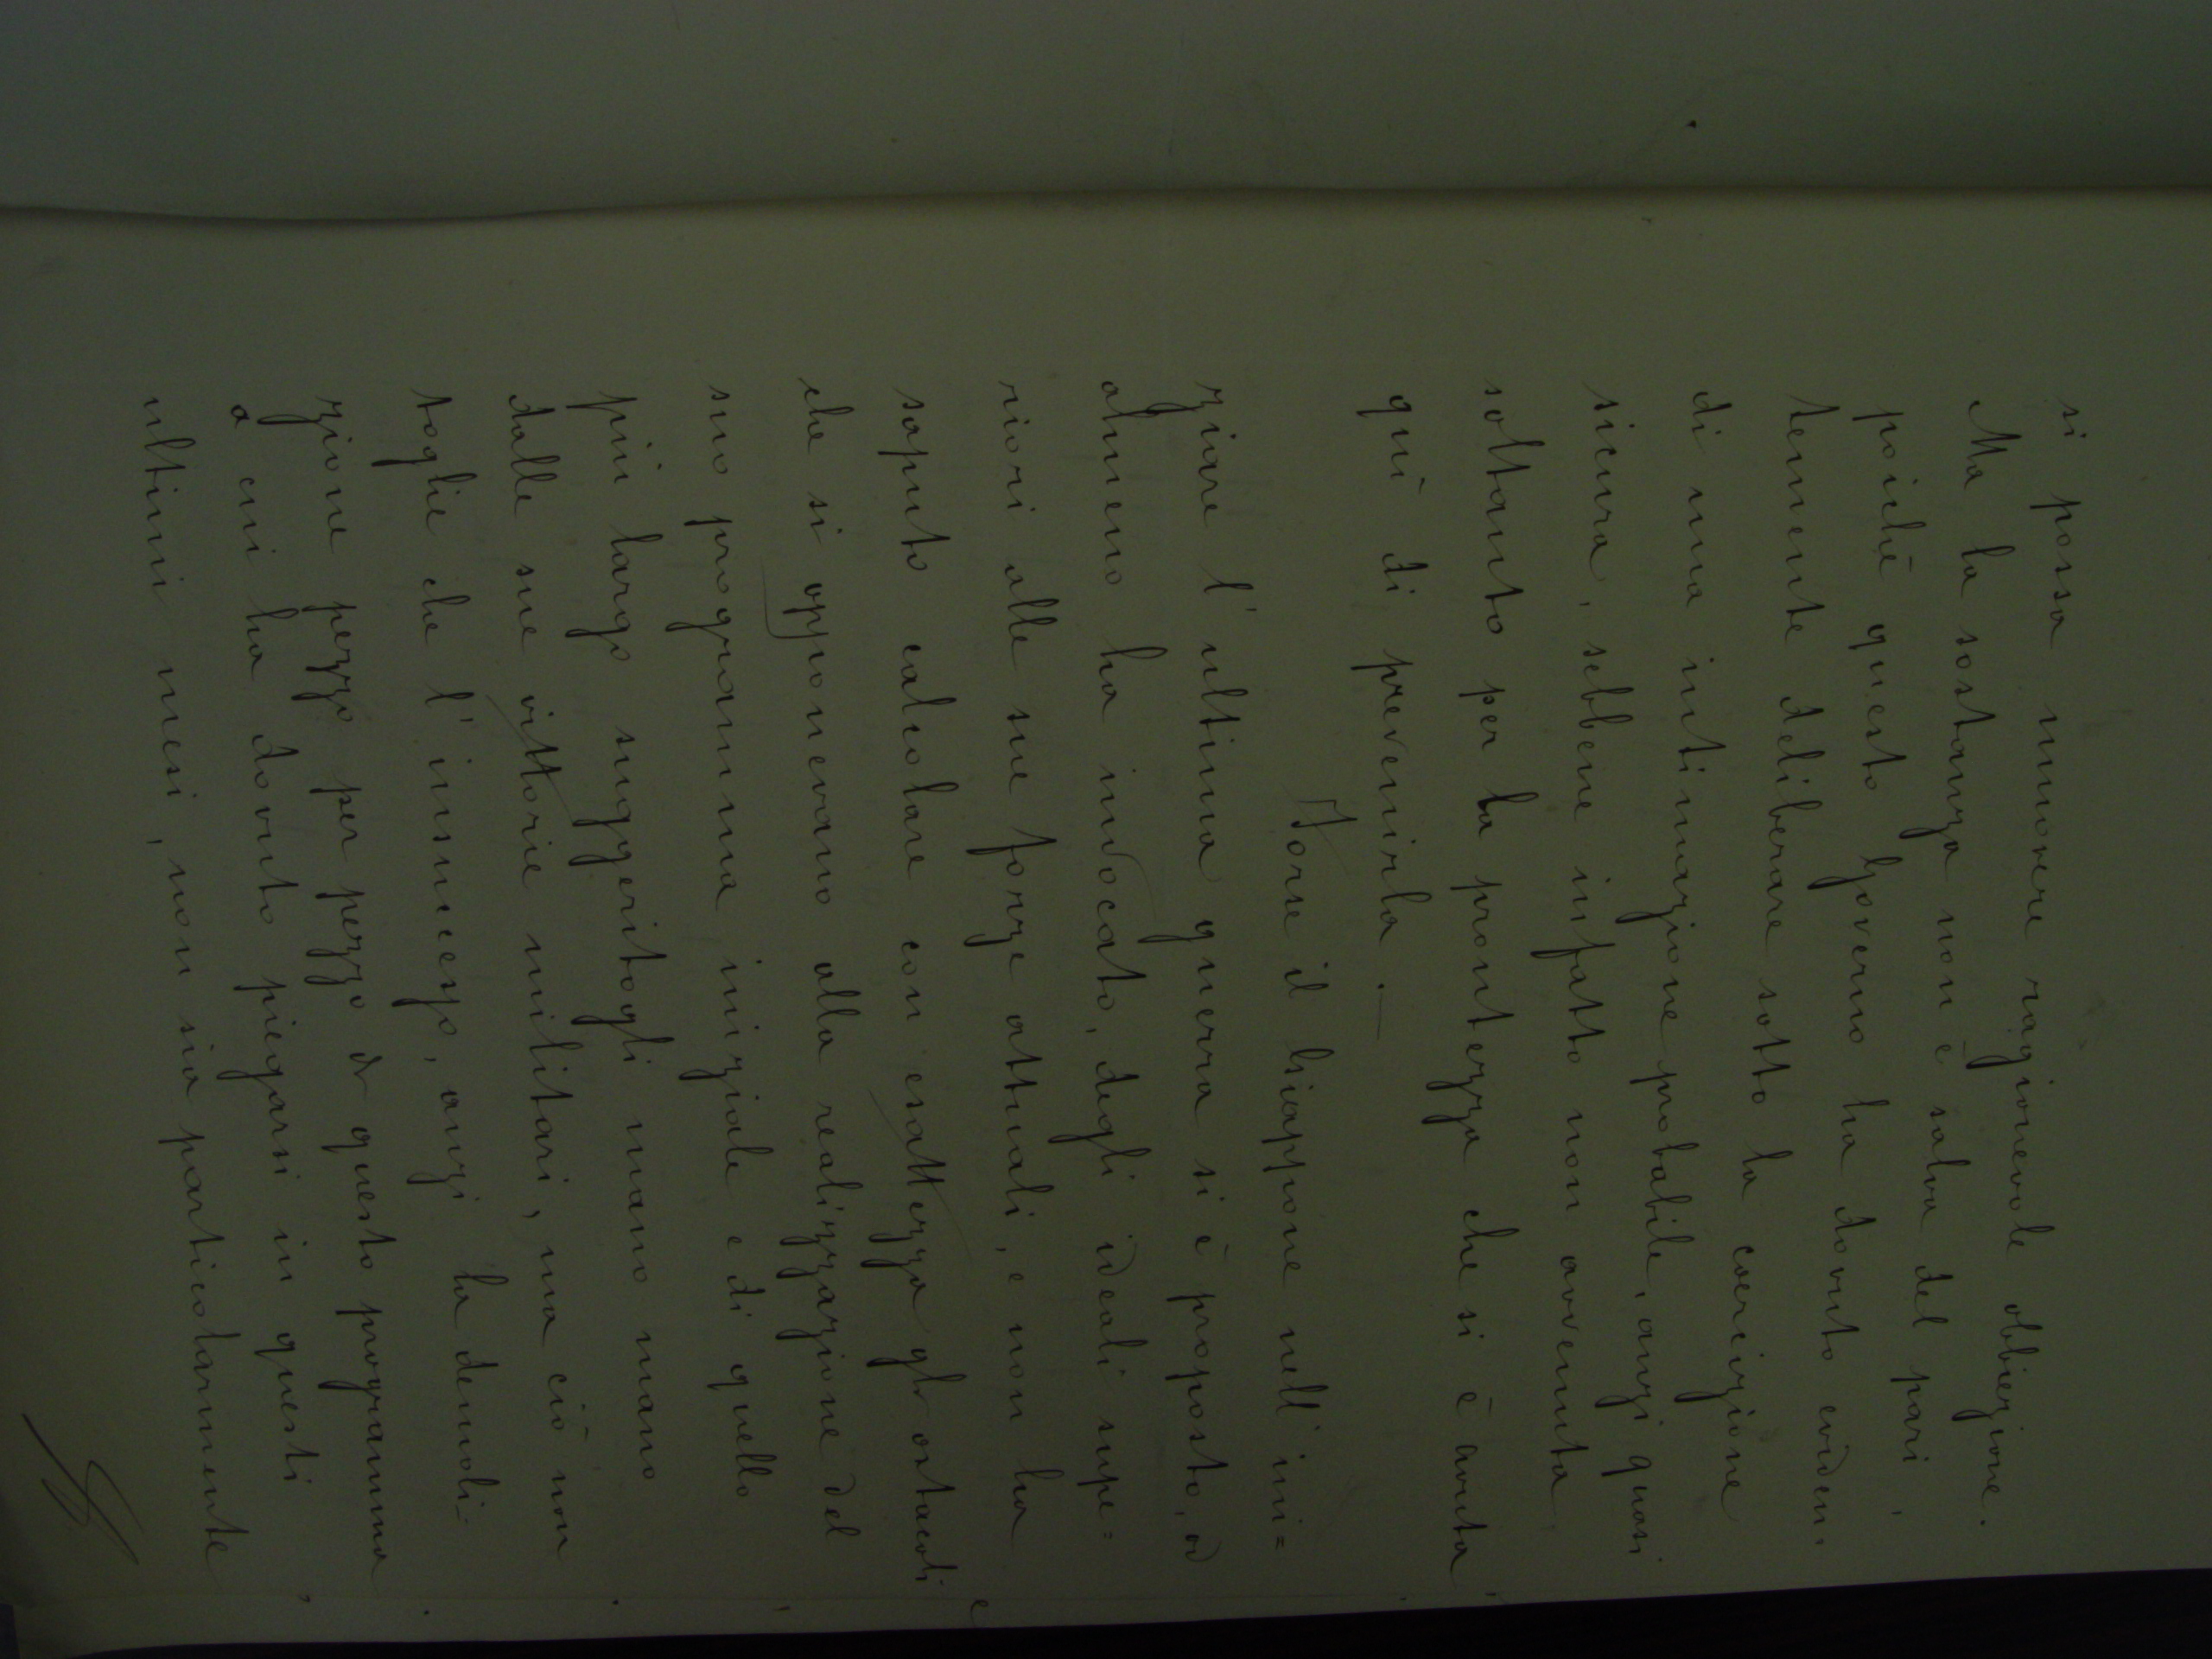 si possa muovere ragionevole obbiezione.
Ma la sostanza non è salva del pari,
poichè questo Governo ha dovuto eviden-
temente deliberare sotto la coercizione
di una intimazione probabile, anzi quasi
sicura, sebbene infatto non avvenuta
soltanto per la prontezza che si è avuta
quì di prevenirla. —
Forse il Giappone nell' ini=
ziare l' ultima guerra si è proposto, od
almeno ha invocato, degli ideali supe=
riori alle sue forze attuali, e non ha
saputo calcolare con esattezza gli ostacoli
che si opponevano alla realizzazione del
suo programma iniziale e di quello
più largo suggeritogli mano mano
dalle sue vittorie militari, ma ciò non
toglie che l' insuccesso, anzi la demoli-
zione pezzo per pezzo di questo programma
a cui ha dovuto piegarsi in questi
ultimi mesi, non sia particolarmente